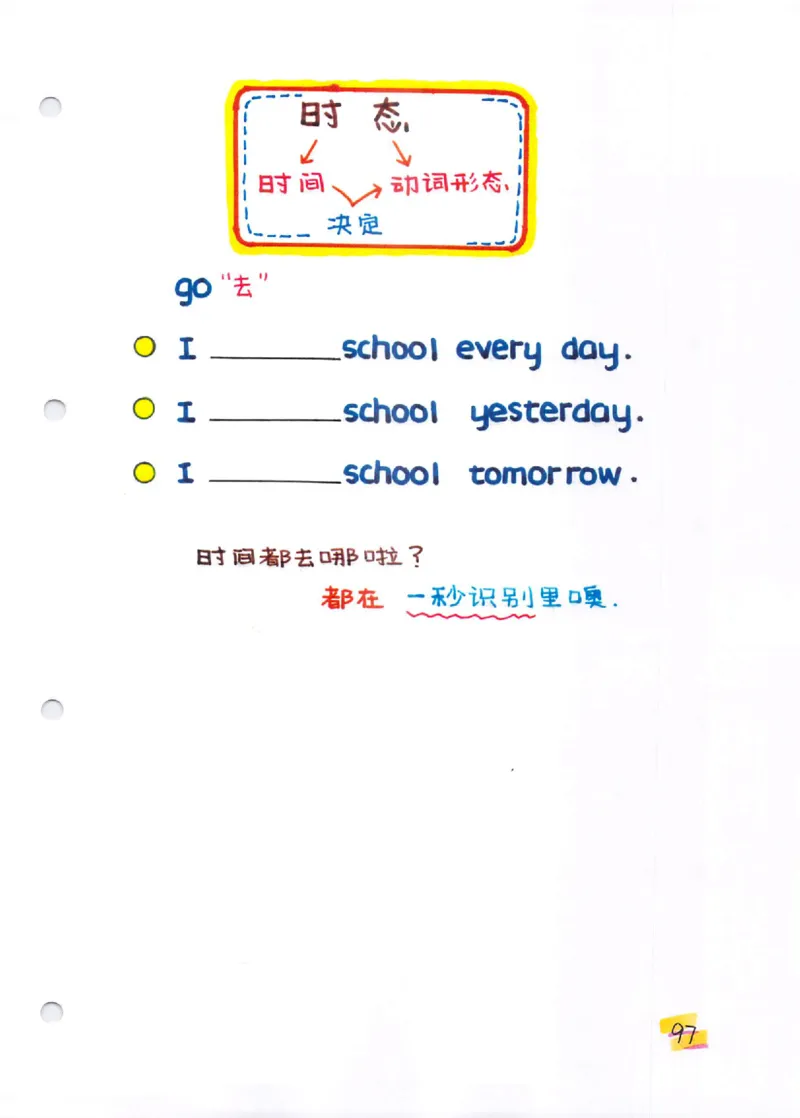 时 态
时间 动词形态
决定
go "去"
I ________ school every day.
I ________ school yesterday.
I ________ school tomorrow.
时间都去哪啦?
都在 一秒识别里噢.
97